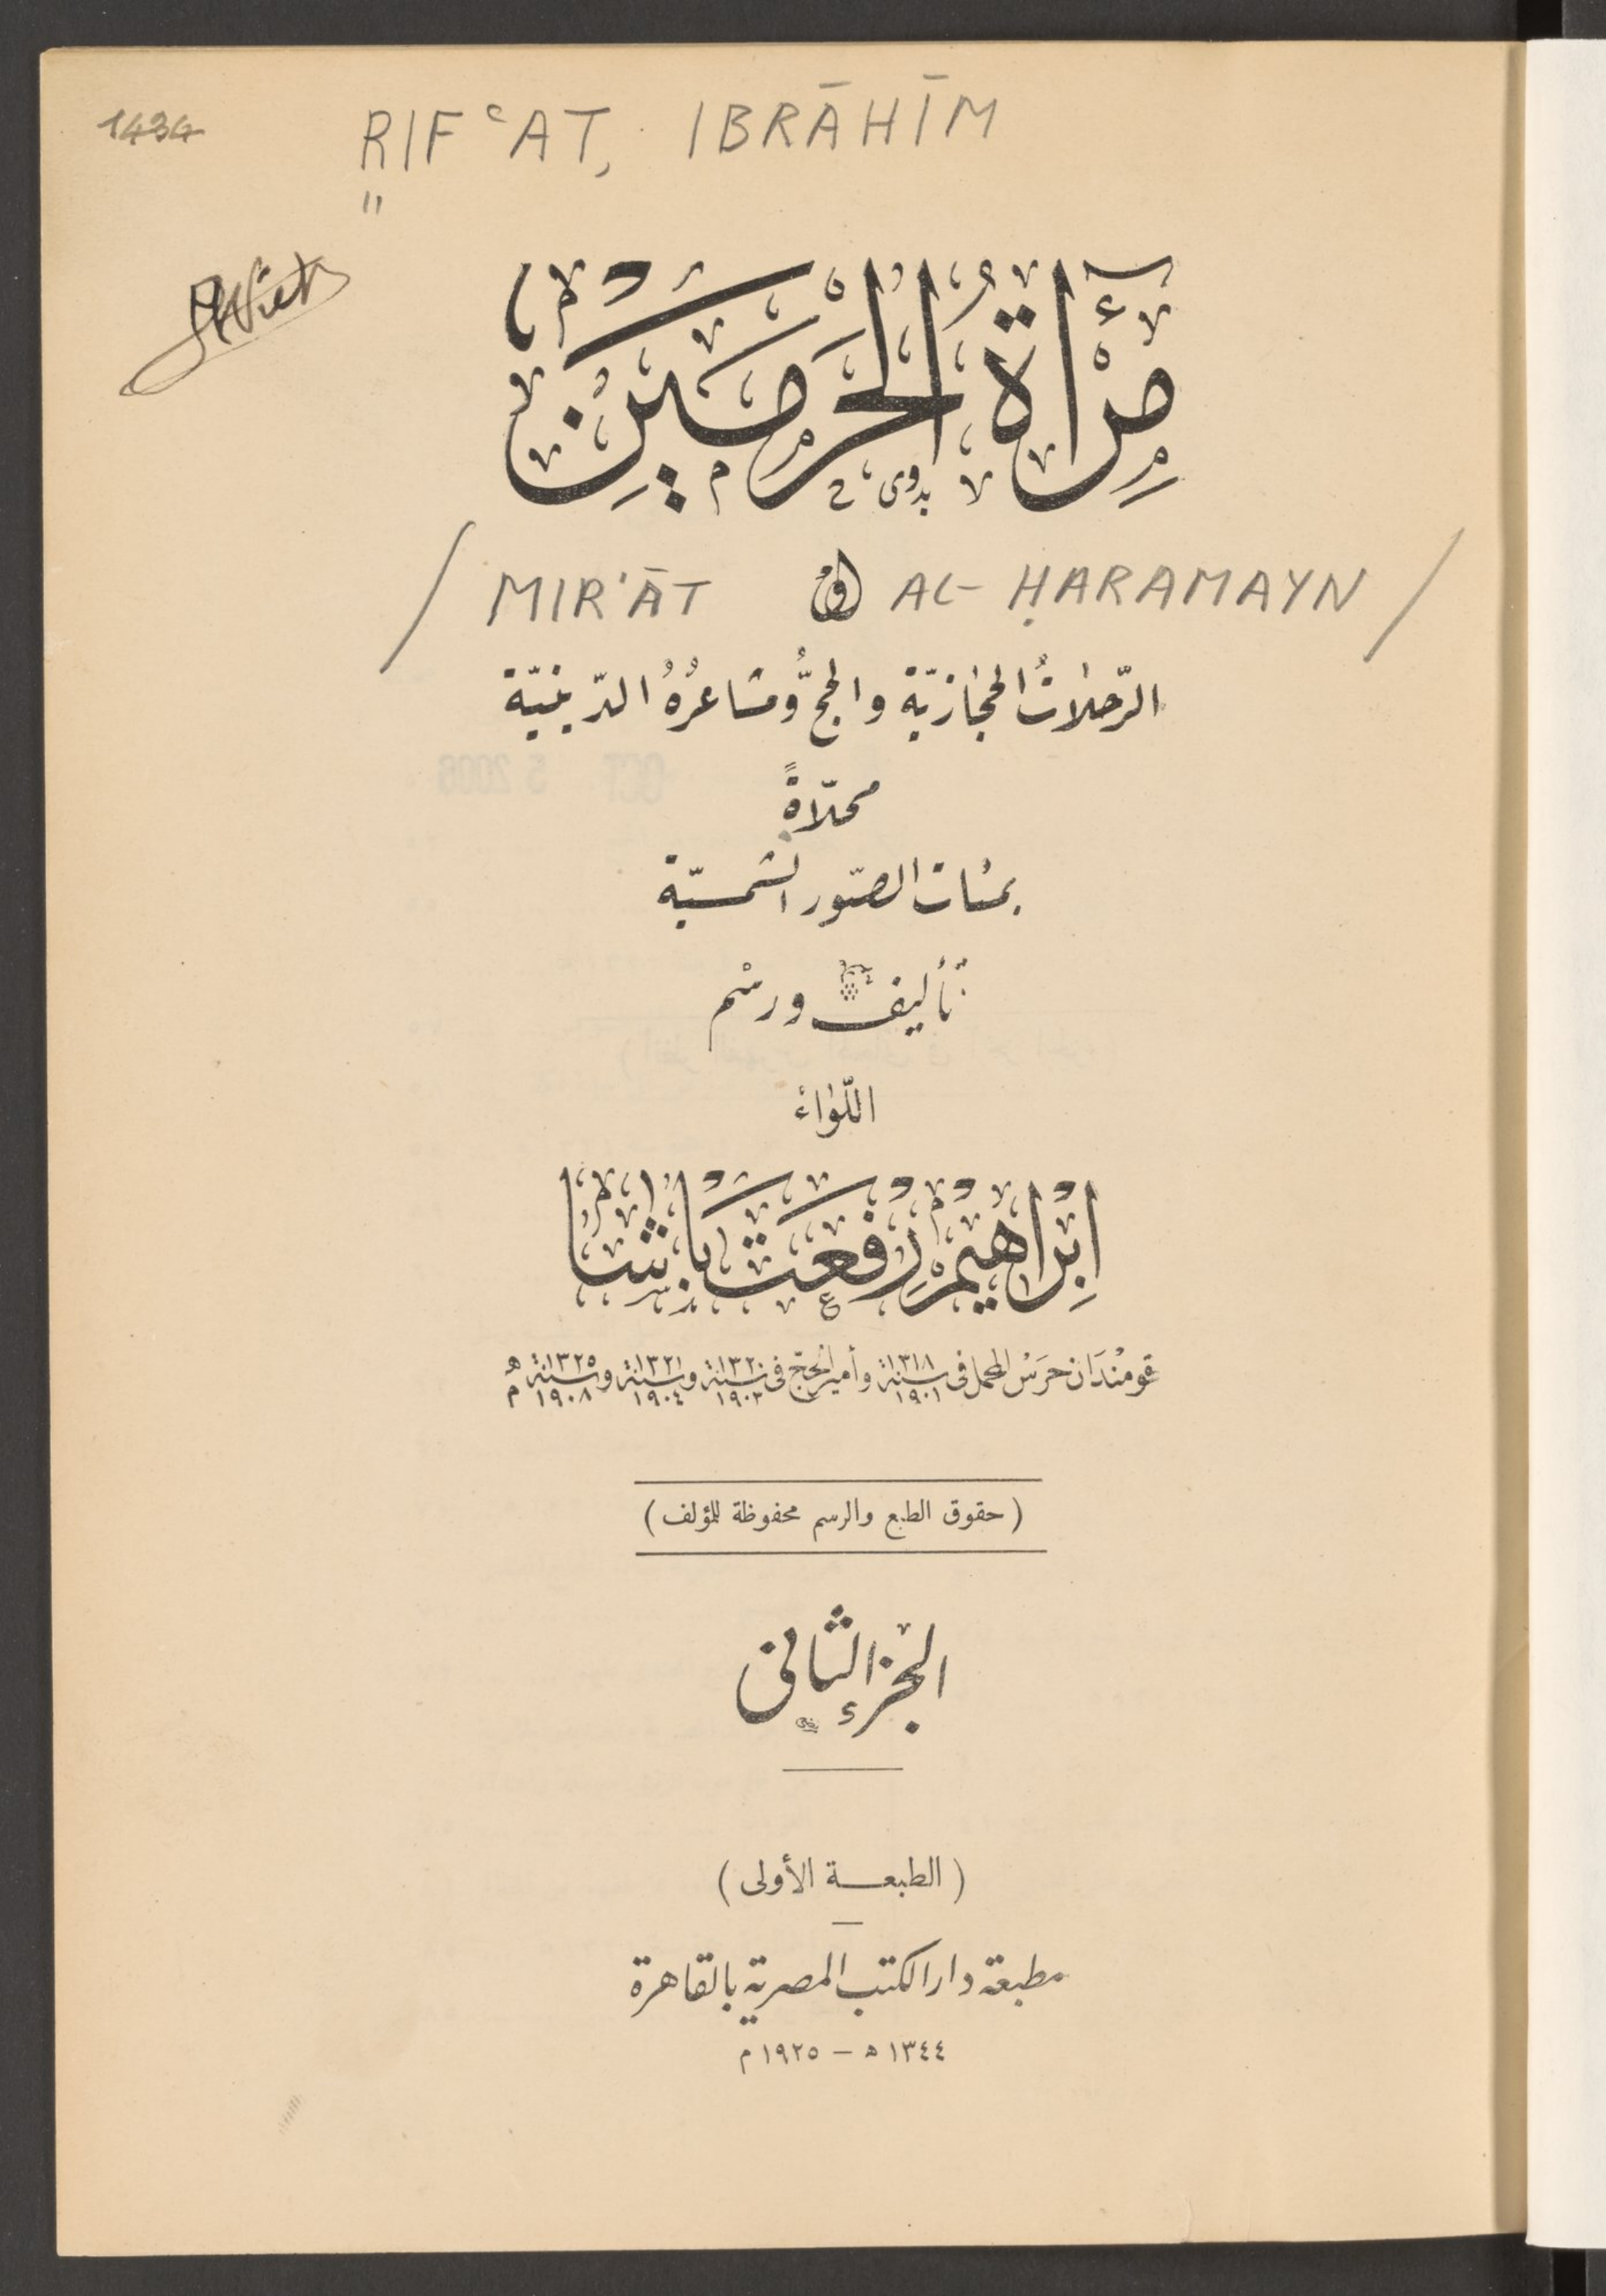 1434
RIFʿAT, IBRĀHĪM
مِرْآةُ الْحَرَمَيْنِ
بدوى
/ MIR'ĀT أو AL-ḤARAMAYN /
الرّحلاتُ الحجازيّة والحجُّ ومشاعرُهُ الدّينيّة
محلّاةً
بمئات الصّور الشمسيّة
تأليف ورسْم
اللّواء
اِبْرَاهِيمْ رِفْعَتْ بَاشَا
قومنْدَان حَرَسْ المحمل فى سنة ١٣١٨ ١٩٠١ وأمير الحجّ فى سنة ١٣٢٠ ١٩٠٣ وسنة ١٣٢١ ١٩٠٤ وسنة ١٣٢٥ ١٩٠٨ ه م
( حقوق الطبع والرسم محفوظة للمؤلف )
الجزء الثانى
( الطبعــة الأولى )
مطبعة دار الكتب المصرية بالقاهرة
١٣٤٤ ه – ١٩٢٥ م